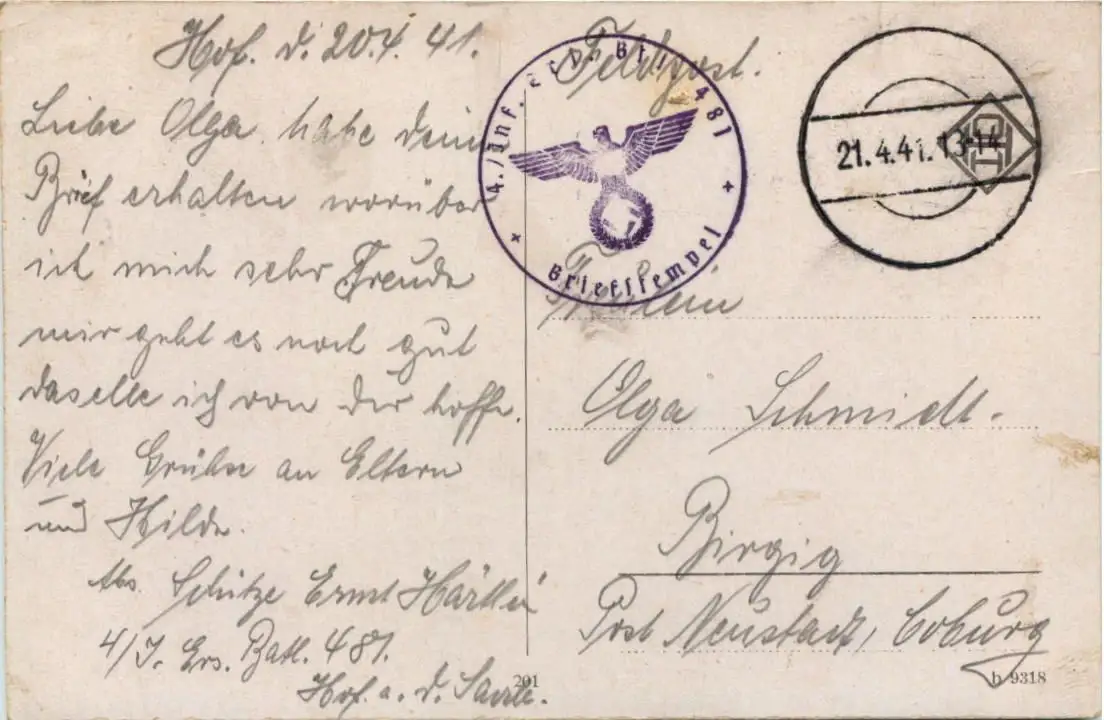 Hof. d. 20.4.41.
Liebe Olga habe dein
Brief erhalten worüber
ich mich sehr Freude
mir geht es noch gut
daselbe ich von dir hoffe.
Viele Grüße an Eltern
und Hilde.
Abs. Schütze Ernst
4/J. Ers. Batl. 481.
Hof. a. d. Saale.
Feldpost.
4./Inf. Ers. Btl. 481
Briefstempel
21.4.41. 13-14
Fräulein
Olga Schmidt.
Birgig
Post Neustadt, Coburg
201
b 9318